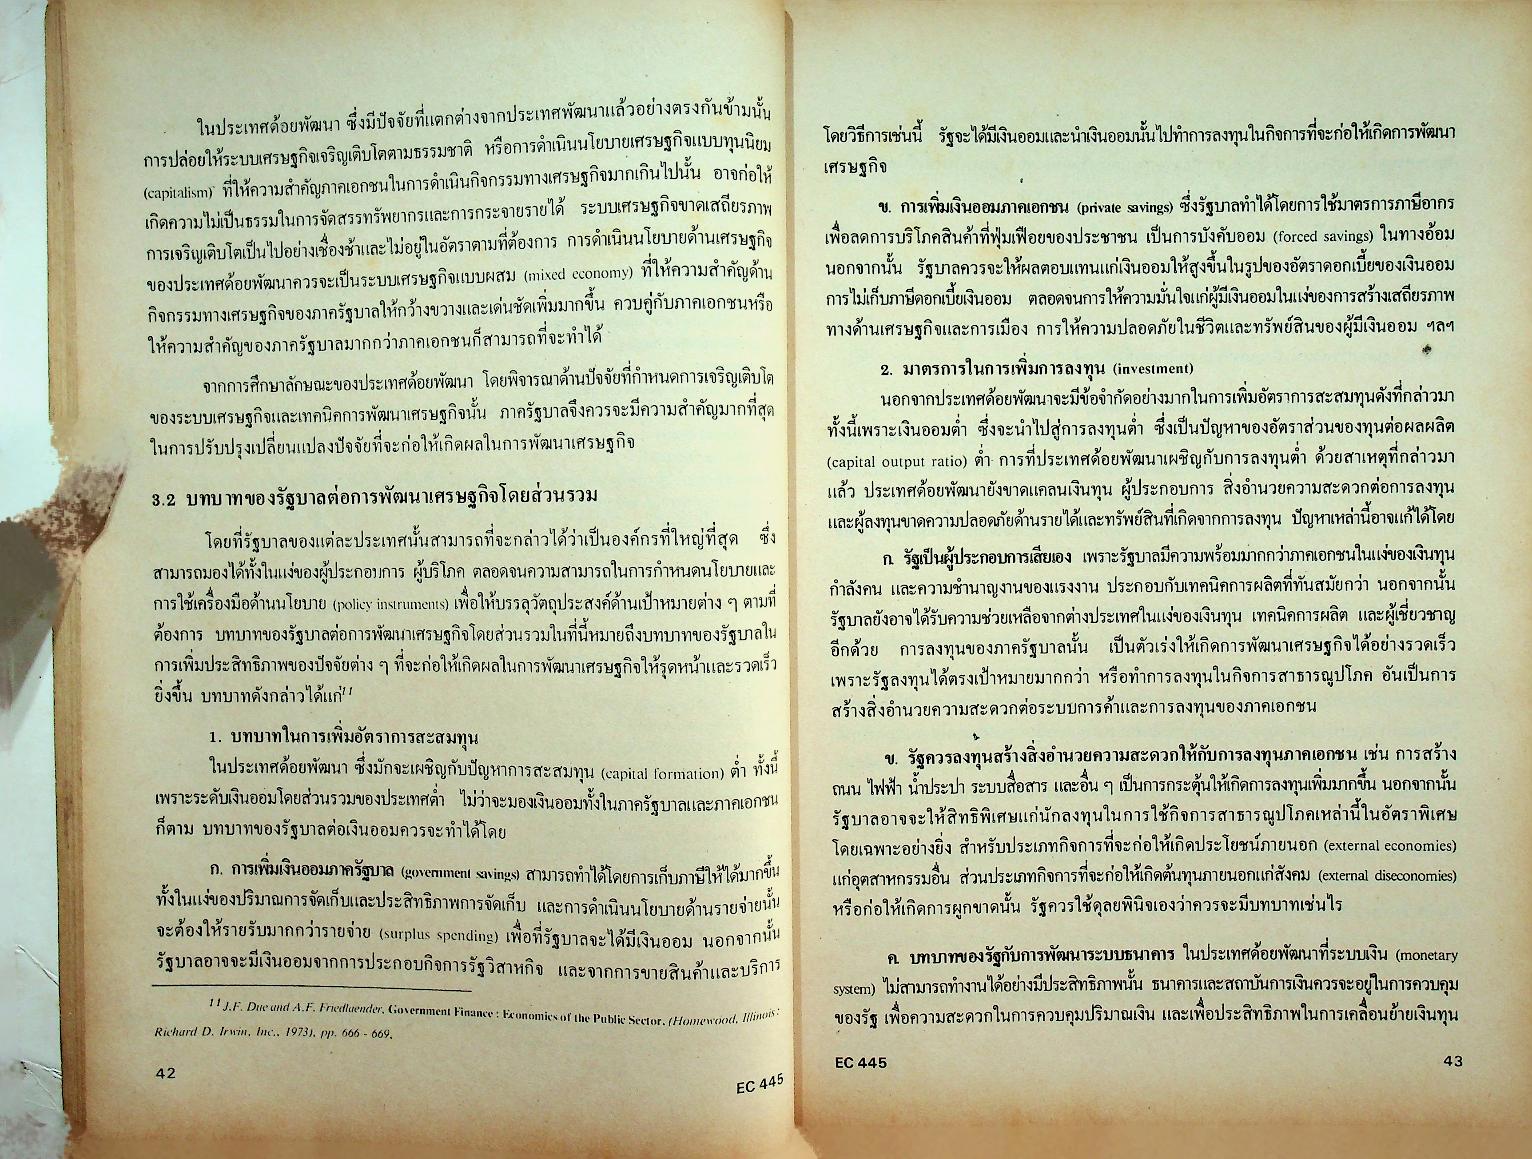 ในประเทศด้อยพัฒนา ซึ่งมีปัจจัยที่แตกต่างจากประเทศพัฒนาแล้วอย่างตรงกันข้ามนั้น
การปล่อยให้ระบบเศรษฐกิจเจริญเติบโตตามธรรมชาติ หรือการดำเนินนโยบายเศรษฐกิจแบบทุนนิยม
(capitalism) ที่ให้ความสำคัญภาคเอกชนในการดำเนินกิจกรรมทางเศรษฐกิจมากเกินไปนั้น อาจก่อให้
เกิดความไม่เป็นธรรมในการจัดสรรทรัพยากรและการกระจายรายได้ ระบบเศรษฐกิจขาดเสถียรภาพ
การเจริญเติบโตเป็นไปอย่างเชื่องช้าและไม่อยู่ในอัตราตามที่ต้องการ การดำเนินนโยบายด้านเศรษฐกิจ
ของประเทศด้อยพัฒนาควรจะเป็นระบบเศรษฐกิจแบบผสม (mixed economy) ที่ให้ความสำคัญด้าน
กิจกรรมทางเศรษฐกิจของภาครัฐบาลให้กว้างขวางและเด่นชัดเพิ่มมากขึ้น ควบคู่กับภาคเอกชนหรือ
ให้ความสำคัญของภาครัฐบาลมากกว่าภาคเอกชนก็สามารถที่จะทำได้
จากการศึกษาลักษณะของประเทศด้อยพัฒนา โดยพิจารณาด้านปัจจัยที่กำหนดการเจริญเติบโต
ของระบบเศรษฐกิจและเทคนิคการพัฒนาเศรษฐกิจนั้น ภาครัฐบาลจึงควรจะมีความสำคัญมากที่สุด
ในการปรับปรุงเปลี่ยนแปลงปัจจัยที่จะก่อให้เกิดผลในการพัฒนาเศรษฐกิจ
3.2 บทบาทของรัฐบาลต่อการพัฒนาเศรษฐกิจโดยส่วนรวม
โดยที่รัฐบาลของแต่ละประเทศนั้นสามารถที่จะกล่าวได้ว่าเป็นองค์กรที่ใหญ่ที่สุด ซึ่ง
สามารถมองได้ทั้งในแง่ของผู้ประกอบการ ผู้บริโภค ตลอดจนความสามารถในการกำหนดนโยบายและ
การใช้เครื่องมือด้านนโยบาย (policy instruments) เพื่อให้บรรลุวัตถุประสงค์ด้านเป้าหมายต่าง ๆ ตามที่
ต้องการ บทบาทของรัฐบาลต่อการพัฒนาเศรษฐกิจโดยส่วนรวมในที่นี้หมายถึงบทบาทของรัฐบาลใน
การเพิ่มประสิทธิภาพของปัจจัยต่าง ๆ ที่จะก่อให้เกิดผลในการพัฒนาเศรษฐกิจให้รุดหน้าและรวดเร็ว
ยิ่งขึ้น บทบาทดังกล่าวได้แก่11
1. บทบาทในการเพิ่มอัตราการสะสมทุน
ในประเทศด้อยพัฒนา ซึ่งมักจะเผชิญกับปัญหาการสะสมทุน (capital formation) ต่ำ ทั้งนี้
เพราะระดับเงินออมโดยส่วนรวมของประเทศต่ำ ไม่ว่าจะมองเงินออมทั้งในภาครัฐบาลและภาคเอกชน
ก็ตาม บทบาทของรัฐบาลต่อเงินออมควรจะทำได้โดย
ก. การเพิ่มเงินออมภาครัฐบาล (government savings) สามารถทำได้โดยการเก็บภาษีให้ได้มากขึ้น
ทั้งในแง่ของปริมาณการจัดเก็บและประสิทธิภาพการจัดเก็บ และการดำเนินนโยบายด้านรายจ่ายนั้น
จะต้องให้รายรับมากกว่ารายจ่าย (surplus spending) เพื่อที่รัฐบาลจะได้มีเงินออม นอกจากนั้น
รัฐบาลอาจจะมีเงินออมจากการประกอบกิจการรัฐวิสาหกิจ และจากการขายสินค้าและบริการ
11J.F. Due and A.F. Friedlaender, Government Finance : Economics of the Public Sector, (Homewood, Illinois:
Richard D. Irwin, Inc., 1973), pp. 666 - 669.
42
EC 445
โดยวิธีการเช่นนี้ รัฐจะได้มีเงินออมและนำเงินออมนั้นไปทำการลงทุนในกิจการที่จะก่อให้เกิดการพัฒนา
เศรษฐกิจ
ข. การเพิ่มเงินออมภาคเอกชน (private savings) ซึ่งรัฐบาลทำได้โดยการใช้มาตรการภาษีอากร
เพื่อลดการบริโภคสินค้าที่ฟุ่มเฟือยของประชาชน เป็นการบังคับออม (forced savings) ในทางอ้อม
นอกจากนั้น รัฐบาลควรจะให้ผลตอบแทนแก่เงินออมให้สูงขึ้นในรูปของอัตราดอกเบี้ยของเงินออม
การไม่เก็บภาษีดอกเบี้ยเงินออม ตลอดจนการให้ความมั่นใจแก่ผู้มีเงินออมในแง่ของการสร้างเสถียรภาพ
ทางด้านเศรษฐกิจและการเมือง การให้ความปลอดภัยในชีวิตและทรัพย์สินของผู้มีเงินออม ฯลฯ
2. มาตรการในการเพิ่มการลงทุน (investment)
นอกจากประเทศด้อยพัฒนาจะมีข้อจำกัดอย่างมากในการเพิ่มอัตราการสะสมทุนดังที่กล่าวมา
ทั้งนี้เพราะเงินออมต่ำ ซึ่งจะนำไปสู่การลงทุนต่ำ ซึ่งเป็นปัญหาของอัตราส่วนของทุนต่อผลผลิต
(capital output ratio) ต่ำ การที่ประเทศด้อยพัฒนาเผชิญกับการลงทุนต่ำ ด้วยสาเหตุที่กล่าวมา
แล้ว ประเทศด้อยพัฒนายังขาดแคลนเงินทุน ผู้ประกอบการ สิ่งอำนวยความสะดวกต่อการลงทุน
และผู้ลงทุนขาดความปลอดภัยด้านรายได้และทรัพย์สินที่เกิดจากการลงทุน ปัญหาเหล่านี้อาจแก้ได้โดย
ก. รัฐเป็นผู้ประกอบการเสียเอง เพราะรัฐบาลมีความพร้อมมากกว่าภาคเอกชนในแง่ของเงินทุน
กำลังคน และความชำนาญงานของแรงงาน ประกอบกับเทคนิคการผลิตที่ทันสมัยกว่า นอกจากนั้น
รัฐบาลยังอาจได้รับความช่วยเหลือจากต่างประเทศในแง่ของเงินทุน เทคนิคการผลิต และผู้เชี่ยวชาญ
อีกด้วย การลงทุนของภาครัฐบาลนั้น เป็นตัวเร่งให้เกิดการพัฒนาเศรษฐกิจได้อย่างรวดเร็ว
เพราะรัฐลงทุนได้ตรงเป้าหมายมากกว่า หรือทำการลงทุนในกิจการสาธารณูปโภค อันเป็นการ
สร้างสิ่งอำนวยความสะดวกต่อระบบการค้าและการลงทุนของภาคเอกชน
ข. รัฐควรลงทุนสร้างสิ่งอำนวยความสะดวกให้กับการลงทุนภาคเอกชน เช่น การสร้าง
ถนน ไฟฟ้า น้ำประปา ระบบสื่อสาร และอื่น ๆ เป็นการกระตุ้นให้เกิดการลงทุนเพิ่มมากขึ้น นอกจากนั้น
รัฐบาลอาจจะให้สิทธิพิเศษแก่นักลงทุนในการใช้กิจการสาธารณูปโภคเหล่านี้ในอัตราพิเศษ
โดยเฉพาะอย่างยิ่ง สำหรับประเภทกิจการที่จะก่อให้เกิดประโยชน์ภายนอก (external economies)
แก่อุตสาหกรรมอื่น ส่วนประเภทกิจการที่จะก่อให้เกิดต้นทุนภายนอกแก่สังคม (external diseconomies)
หรือก่อให้เกิดการผูกขาดนั้น รัฐควรใช้ดุลยพินิจเองว่าควรจะมีบทบาทเช่นไร
ค. บทบาทของรัฐกับการพัฒนาระบบธนาคาร ในประเทศด้อยพัฒนาที่ระบบเงิน (monetary
system) ไม่สามารถทำงานได้อย่างมีประสิทธิภาพนั้น ธนาคารและสถาบันการเงินควรจะอยู่ในการควบคุม
ของรัฐ เพื่อความสะดวกในการควบคุมปริมาณเงิน และเพื่อประสิทธิภาพในการเคลื่อนย้ายเงินทุน
EC 445
43